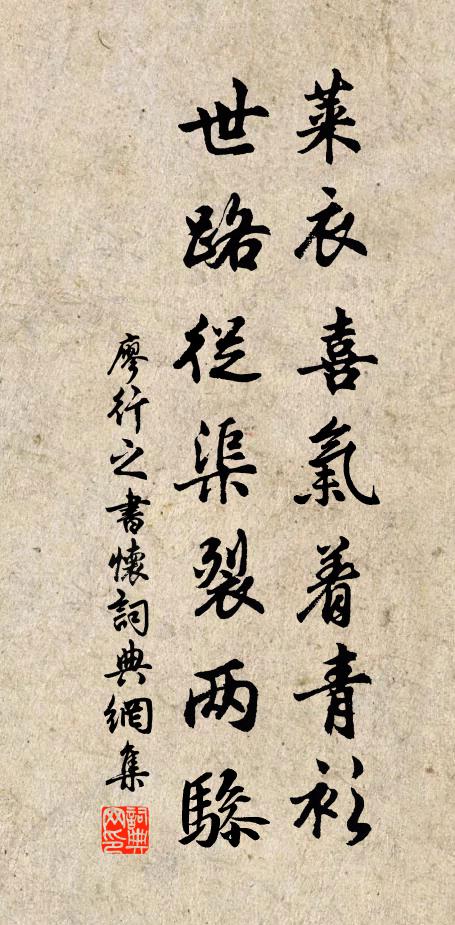 莱衣喜氣着青衫
世路從渠裂兩驂
廖行之書懷詞典網集
詞典网印